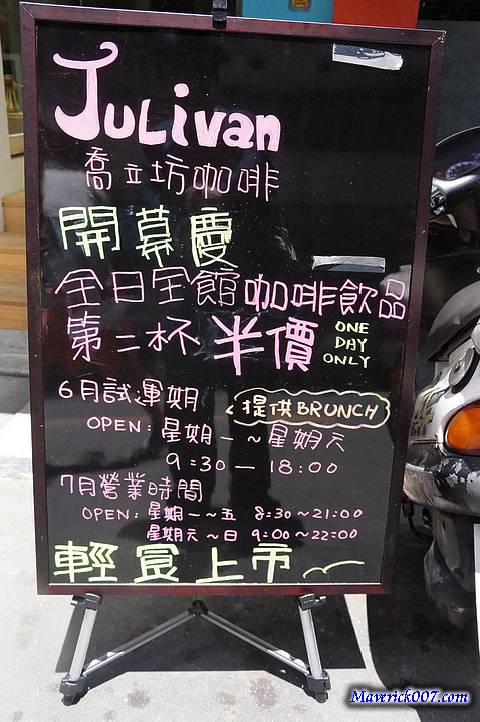 Julivan
喬立坊咖啡
開幕慶
全日全館咖啡飲品
第二杯半價 ONE DAY ONLY
6月試運期 提供BRUNCH
OPEN: 星期一~星期六
9:30-18:00
7月營業時間
OPEN: 星期一~五 8:30~21:00
星期六~日 9:00~22:00
輕食上市
Maverick007.com